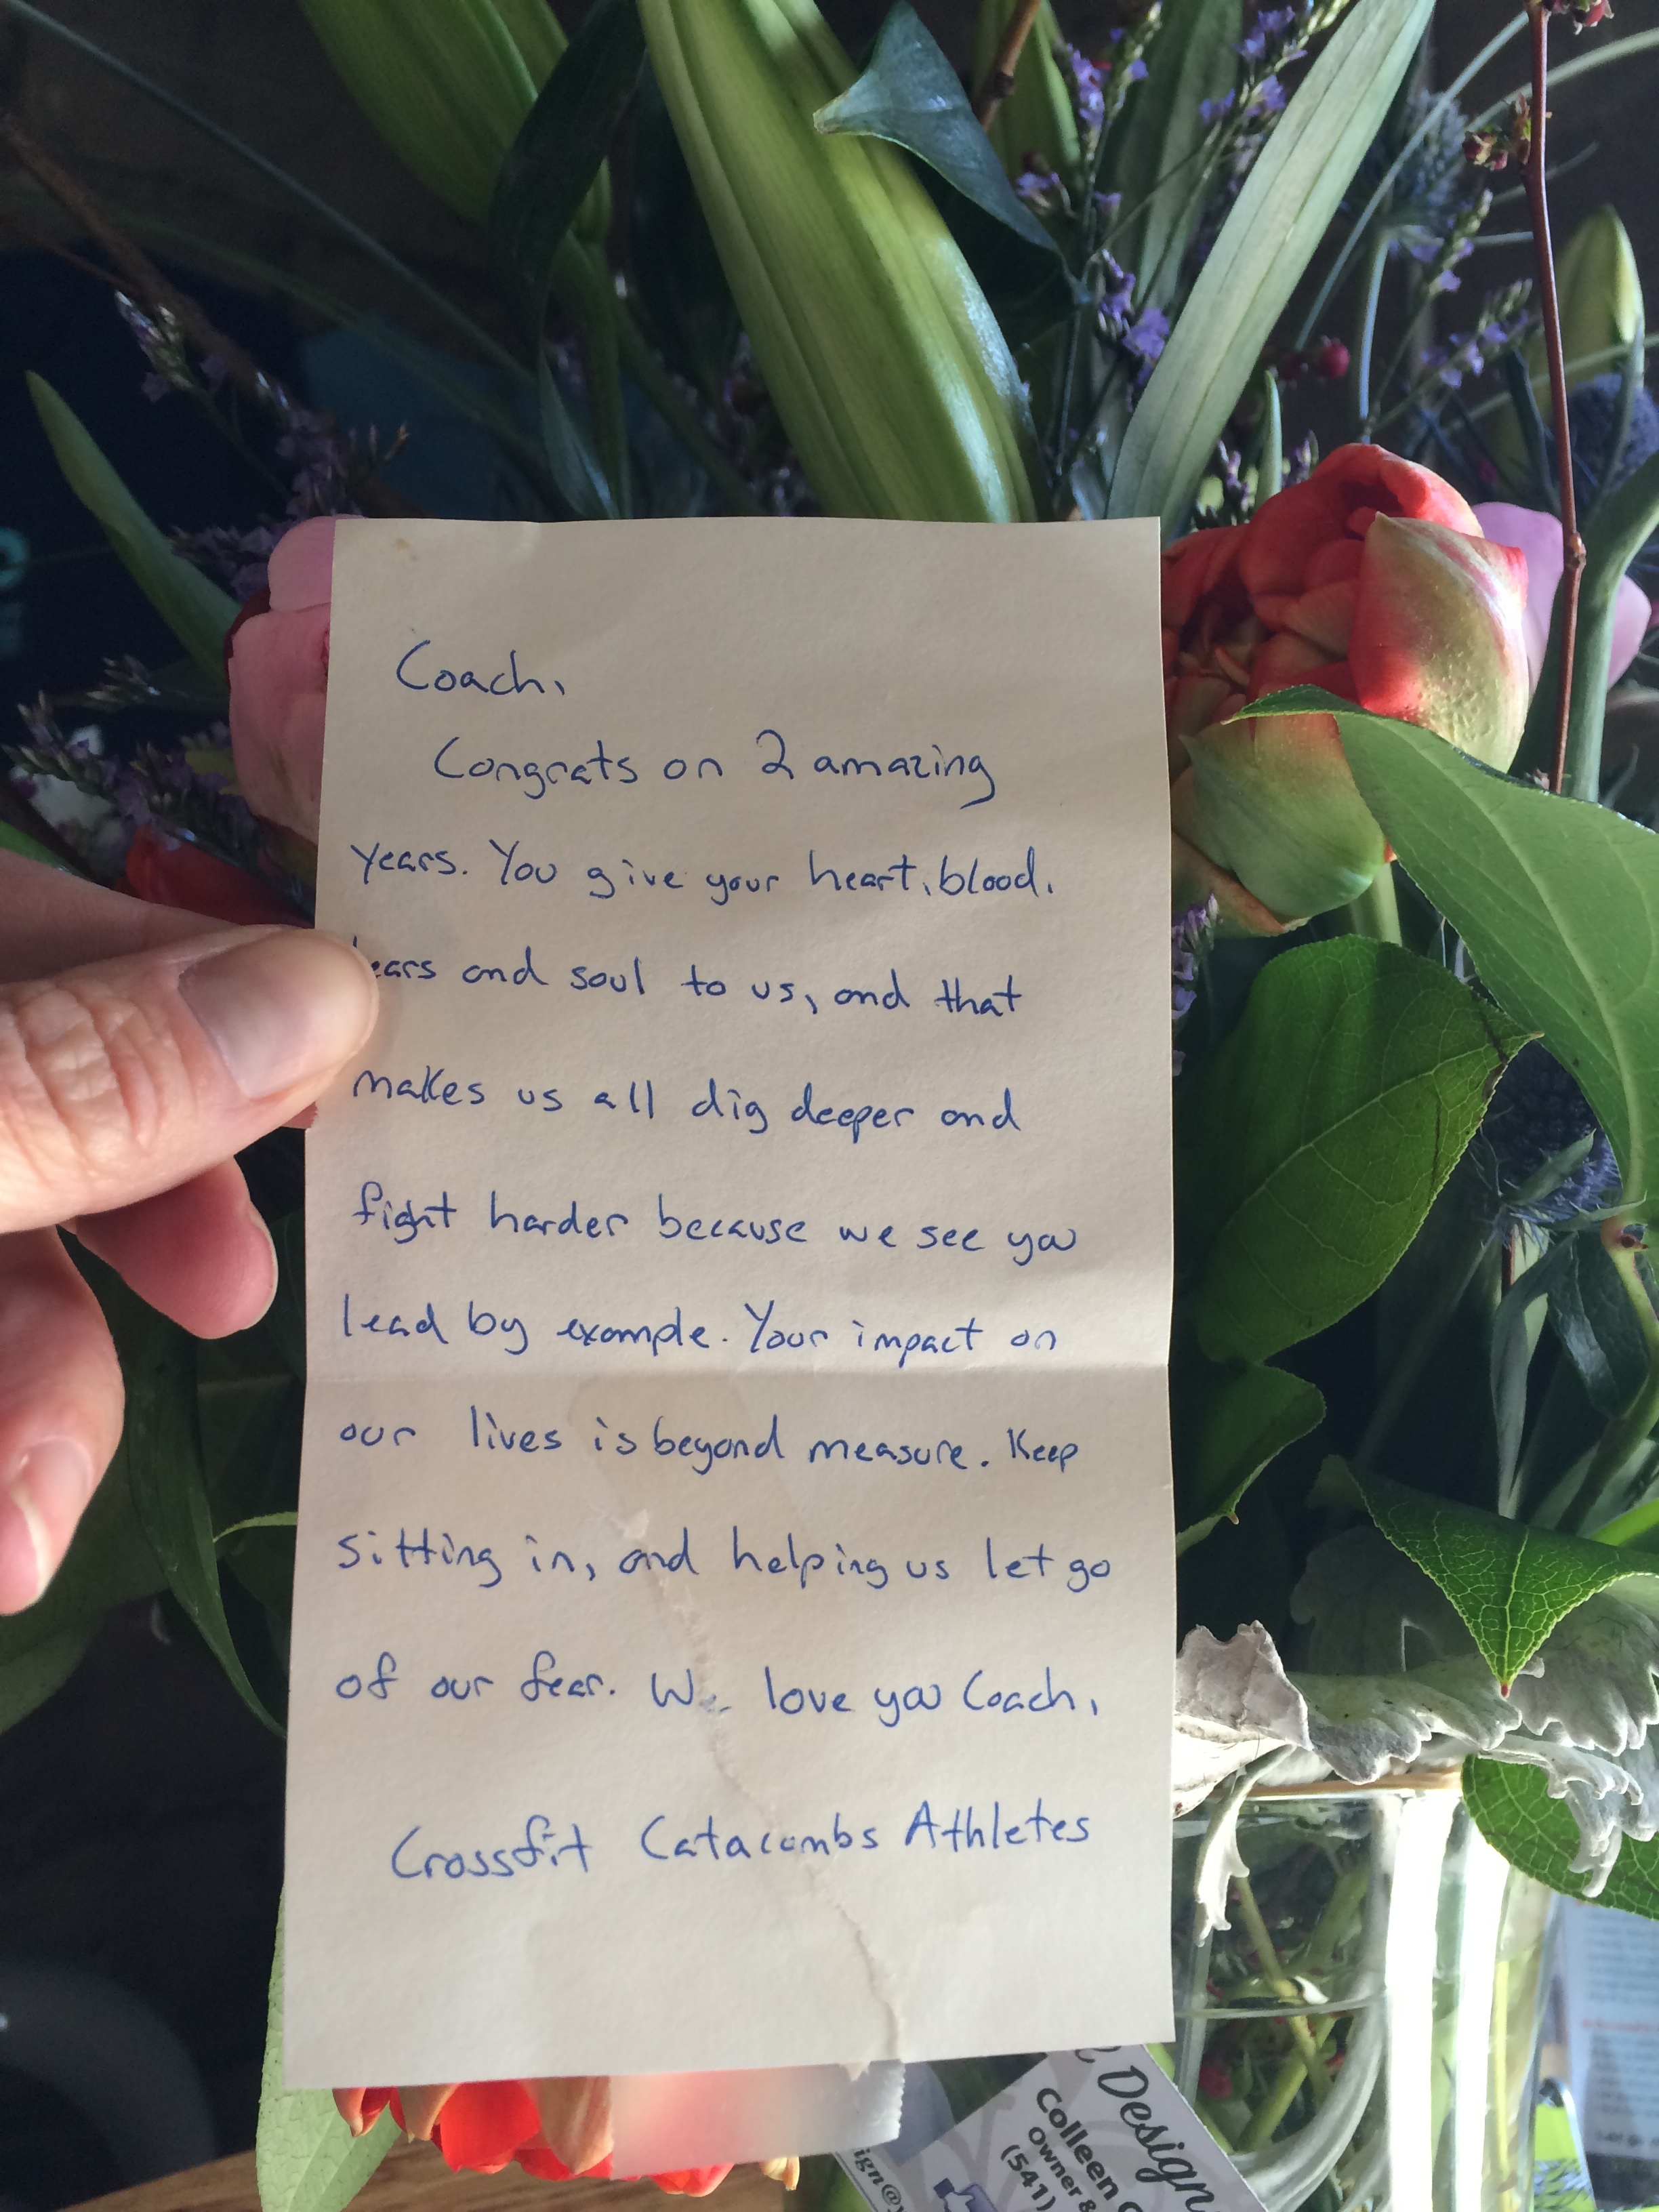 Coach,
Congrats on 2 amazing
years. You give your heart, blood,
tears and soul to us, and that
makes us all dig deeper and
fight harder because we see you
lead by example. Your impact on
our lives is beyond measure. Keep
sitting in, and helping us let go
of our fear. We love you Coach,
Crossfit Catacombs Athletes
Design
Colleen
Owner &
(541)